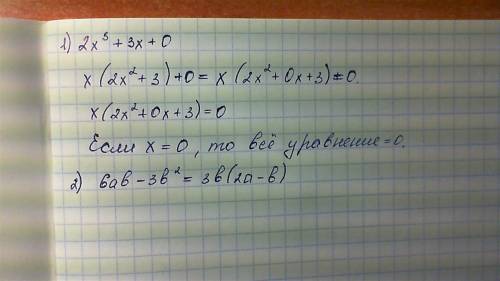 1) 2x³ + 3x + 0
x(2x² + 3) + 0 = x(2x² + 0x + 3) ± 0.
x(2x² + 0x + 3) = 0
Если x = 0, то всё уравнение = 0.
2) 6ab - 3b² = 3b(2a - b)